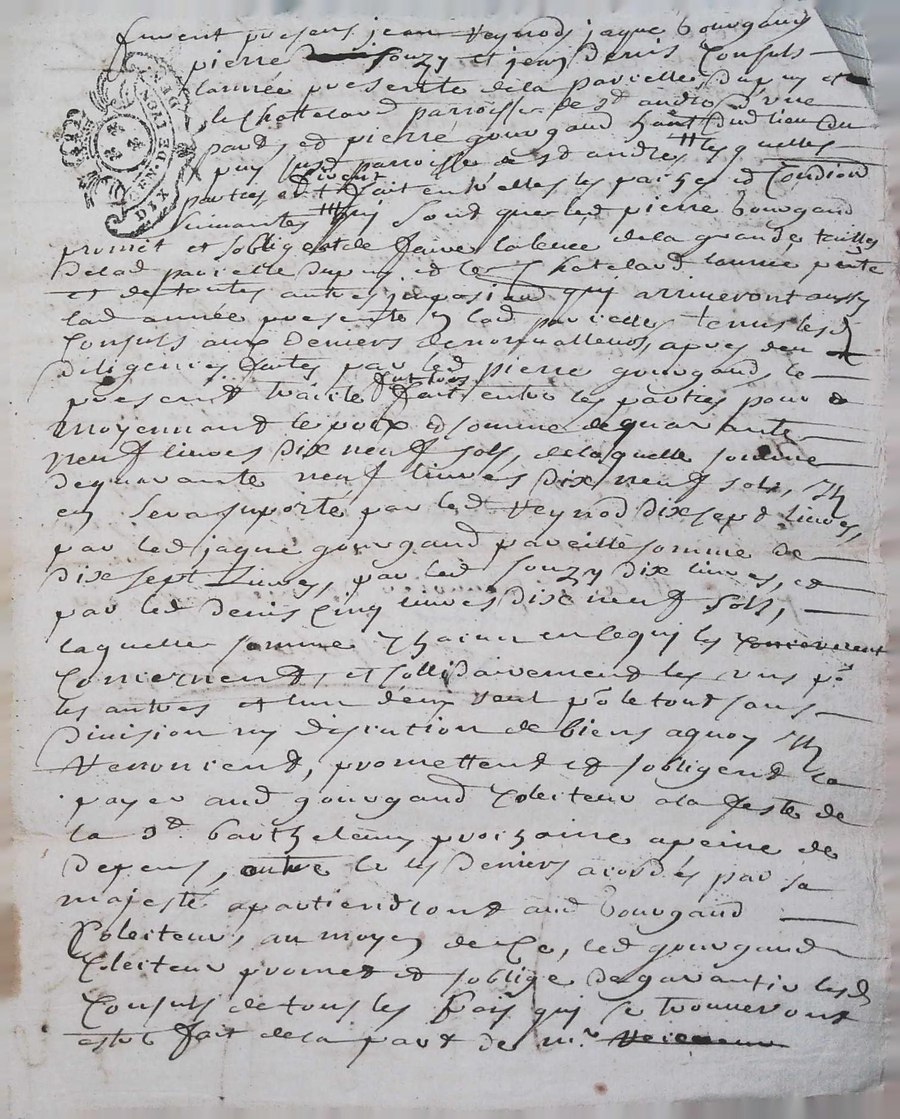 furent presens jean Veynod jaque Gourgaud
pierre Souzy et jean Denis Consuls
lannée presente de la parcelle Dupuy et
le Chattelard parroisse de st andre d'une
part, et pierre gourgaud dud lieu du
puy susd parroisse de st andre lesquelles
parties ont fait entre elles les paches et Condion
Suivantes qui sont que led pierre Gourgaud
promet et soblige de faire la levee de la grande taillie
Delad parcelle Dupuy et le Chatelard lannée pnte
et de toutes autres imposions quy arriveront aussy
lad année presente en lad parcelle, tenir lesd
Consuls aux deniers de nonvalleurs, apres deu
Diligences faites par led pierre gourgaud, le
present traitté fait entre les parties pour &
moyennant le prix et somme de quarante
neuf livres dix neuf sols, de laquelle somme
de quarante neuf livres dix neuf sols, Il
en sera suporté par led Veynod dix sept livres,
par led jaque gourgaud pareille somme de
Dix sept Livres, par led souzy dix livres, et
par led denis Cinq livres dix neuf sols,
laquelle somme Chacun en ce qui les
Concernent, et sollidairement les uns pr
les autres et l'un deux seul pr le tout sans
Division ny discution de biens a quoy Ils
Renoncent, promettent et sobligent la
payer aud gourgaud Coleiteur a la feste de
la st barthelemy prochaine a peine de
Depens, outre ce les Deniers acordés par sa
majesté apartiendront aud Gourgaud
Coleiteur, au moyen de Ce, led gourgaud
Coleiteur promet et soblige de garantir lesd
Consuls de tous les frais quy se trouveront
estre fait de la part de mr
GEN. DE LYON
DIX DEN.